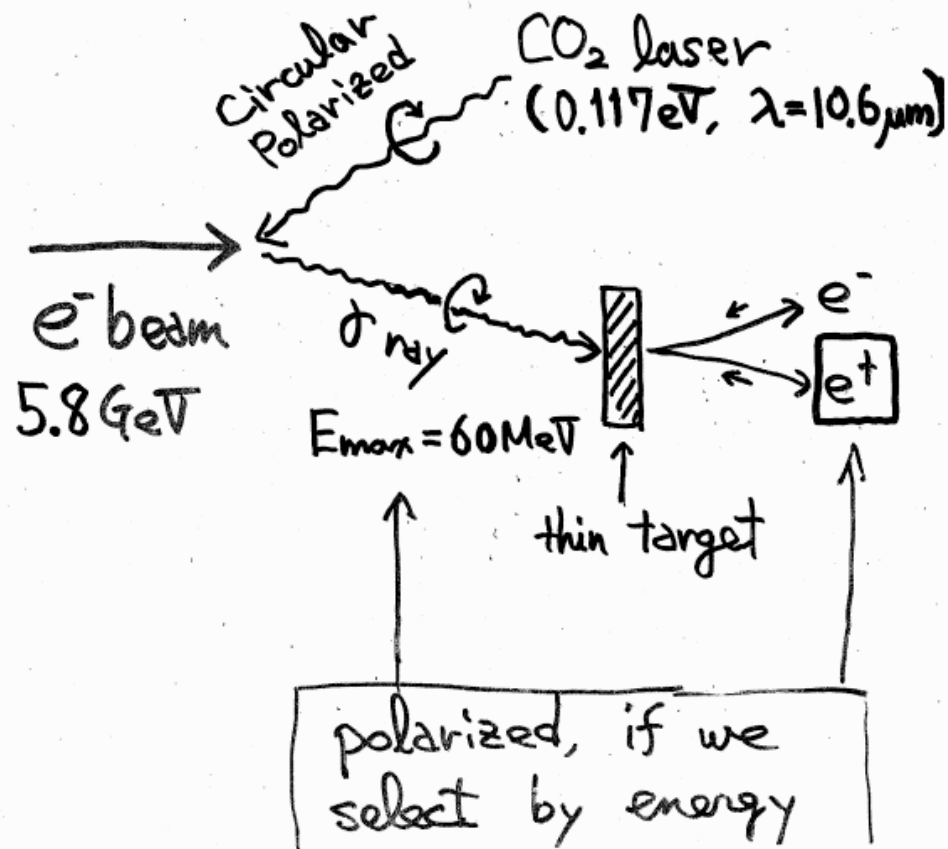 Circular
Polarized
CO₂ laser
(0.117eV, λ=10.6μm)
e⁻ beam
5.8 GeV
γ ray
Emax = 60 MeV
e⁻
e⁺
thin target
polarized, if we
select by energy